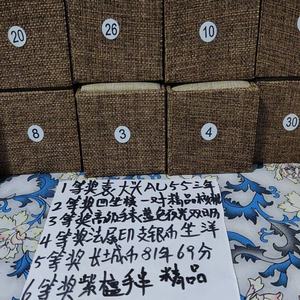 20
26
10
8
3
4
30
1等奖袁大头AU55三年
2等奖四生核一对精品核桃
3等奖高级手表
4等奖法属印支银币坐洋
5等奖长城币81年69分
6等奖紫檀手串 精品